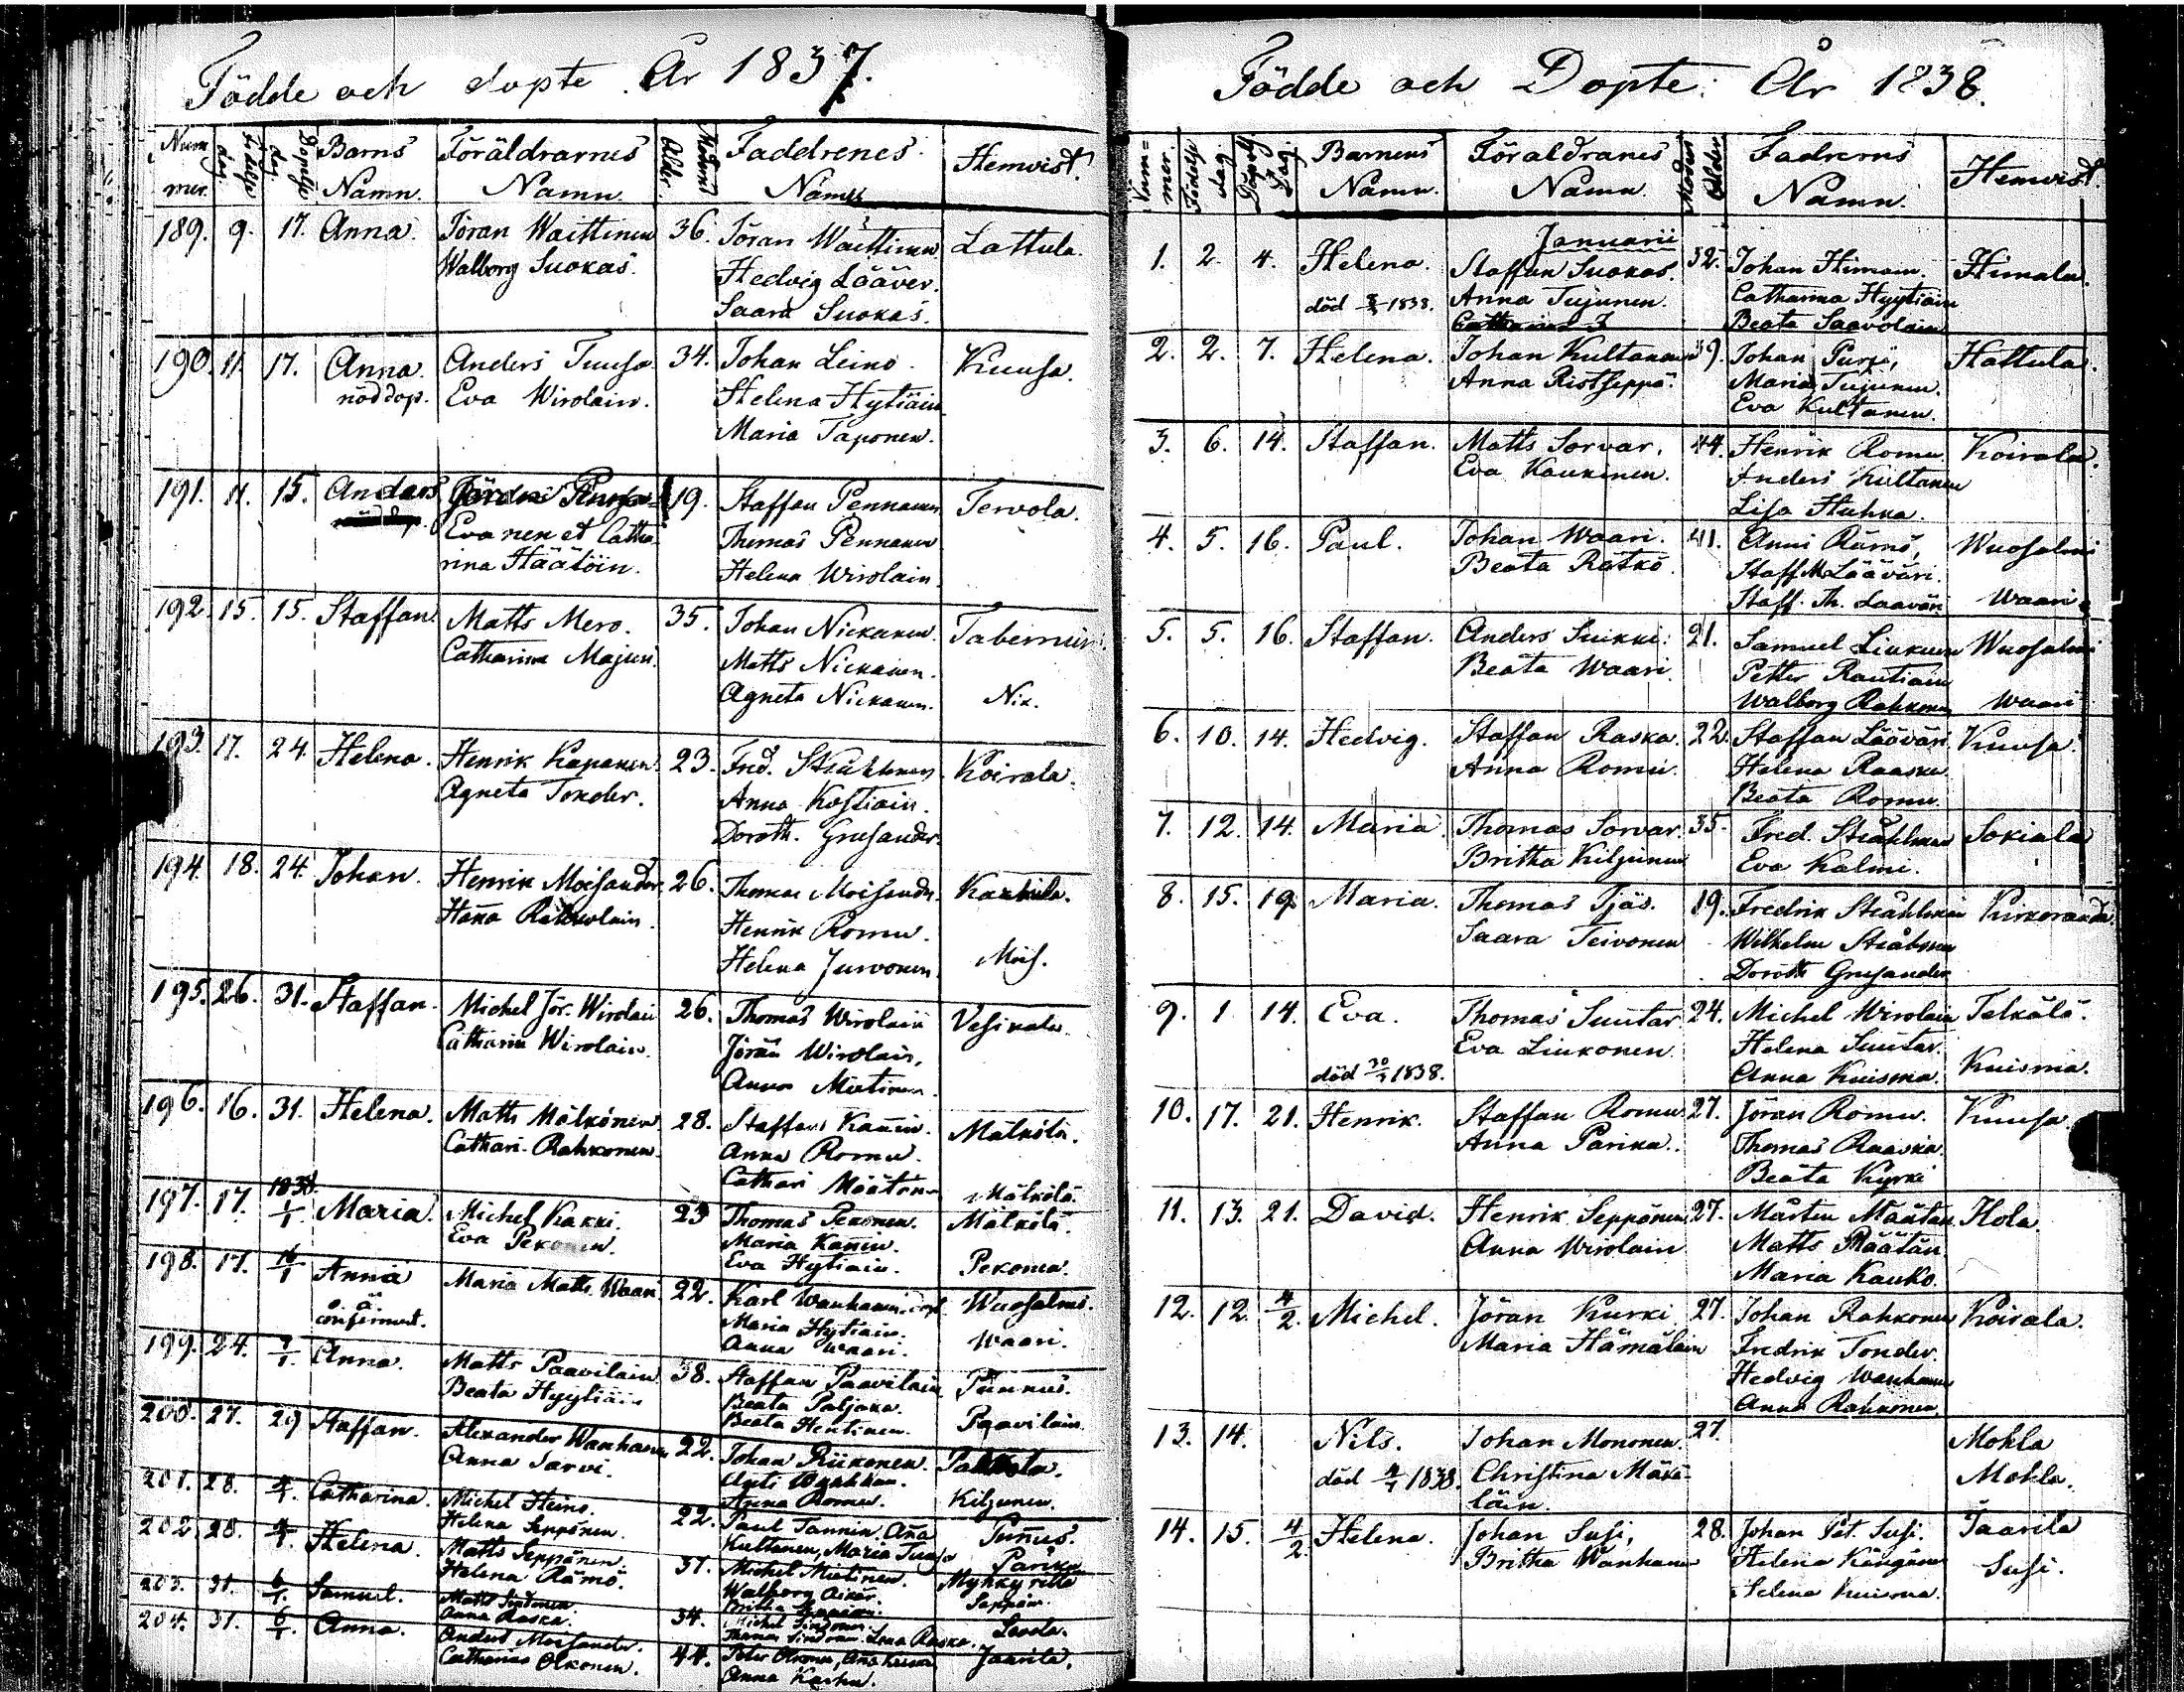 Födde och dopte År 1837.
Num mer. Födelse dag. Dopelse dag. Barns Namn. Föräldrarnes Namn. Moderns Ålder. Faddrenes Namn Hemvist.
189. 9. 17. Anna. Jöran Waittinen 36. Jöran Waittinen Lattula.
Walborg Suokas. Hedvig Lääver.
Saara Suokas.
190. 11. 17. Anna. Anders Tuusa. 34. Johan Leino. Kuusa.
nöddop. Eva Wirolain. Helena Hytiäin
Maria Taponen.
191. 11. 15. Anders 19. Staffan Pennanen Tervola.
Eva nen et Catha Thomas Pennanen
rina Häätöin. Helena Wirolain.
192. 15. 15. Staffan. Matts Mero. 35. Johan Nickanen.
Catharina Majuri. Matts Nickanen.
Agneta Nickanen. Nik.
193. 17. 24. Helena. Henrik Kapanen. 23. Fred. Stråhlman Koirala.
Agneta Tonder. Anna Kostiain.
Doroth. Grusander.
194. 18. 24. Johan. Henrik Moisander. 26. Thomas Moisander
Henrik Romu.
Helena Jurvonen. Mois.
195. 26. 31. Staffan. Michel Jör. Wirolain 26. Thomas Wirolain Vesikala.
Catharin Wirolain. Jöran Wirolain,
Anna Mietinen.
196. 16. 31. Helena. Matts Mälkönen. 28. Staffan Kannin. Mälkölä.
Cathari. Rahkonen. Anna Romu.
Cathari Määtän
197. 17. 1838. 1/1 Maria. Michel Kakki. 23 Thomas Pekonen. Mälkölä.
Eva Pekonen. Maria Kannin. Mälkölä.
Eva Hytiain. Pekoma.
198. 17. 16/1 Anna Maria Matts. Waari. 22. Karl Wanhanen Wuosalmi.
o. ä. Maria Hytiain.
Anna Waari. Waari.
199. 24. 7/1. Anna. Matts Paavilain 38. Staffan Paavilain Punnus.
Beata Hyytiäin Beata Paljaka. Paavilain
Beata Hentinen.
200. 27. 29 Staffan. Alexander Wanhanen 22. Johan Riikonen.
Anna Sarvi. Kiljunen.
Anna Romu.
201. 28. Catharina. Michel Heino. 22. Paul Tannin. Anna Punnus.
Helena Seppönen. Kultanen, Maria Tuusa
202. 28. Helena. Matts Seppänen. 31. Michel Mietinen.
Helena Rämö. Walborg Seppäin.
203. 31. 6/1. Samuel. Matts 34.
Anna Raska. Lena Raska.
204. 31. 6/1. Anna. Anders Moisander. 44. Peter Olkonen, Jaarila.
Catharina Olkonen. Anna
Födde och Dopte: År 1838.
Num= mer. Födelse dag. Döpelse Dag. Barnens Namn. Föraldranes Namn. Moders Ålder. Fadrens Namn. Hemvist.
Januarii
1. 2. 4. Helena. Staffan Suokas. 32. Johan Himain. Himala.
död 1838. Anna Tujunen. Catharina Hyytiäin
Beata Saavolain
2. 2. 7. Helena. Johan Kultanen 39. Johan Purji, Hattula.
Anna Ristseppä. Maria Tujunen.
Eva Kultanen.
3. 6. 14. Staffan. Matts Sorvar. 44. Henrik Romu. Koirala.
Eva Kaukinen. Anders Kultanen
Lisa Huhka.
4. 5. 16. Paul. Johan Waari. 41. Anni Rämö, Wuosalmi
Beata Rätkö. Staff. M. Lääväri.
Staff. Th. Laaväri Waari.
5. 5. 16. Staffan. Anders Suikki. 21. Samuel Liukuen Wuosalmi
Beata Waari. Petter Rautiain
Walborg Rahkonen Waari
6. 10. 14. Hedvig. Staffan Raska. 22. Staffan Lääväri. Kuusa.
Anna Romu. Helena Raaska.
Beata Romu.
7. 12. 14. Maria. Thomas Sorvar. 35. Fred. Stråhlman Sokiala
Britha Kiljunen Eva Kalmi.
8. 15. 19. Maria. Thomas Tjäs. 19. Fredrik Stråhlman Kirkoranda.
Saara Teivonen Wilhelm Stråhman
Doroth Grusander
9. 1 14. Eva. Thomas Suutar. 24. Michel Wirolain Talkälä.
Eva Liukonen. Helena Suutar.
död 1838. Anna Kuisma. Kuisma.
10. 17. 21. Henrik. Staffan Romu. 27. Jöran Romu. Kuusa
Anna Parika. Thomas Raaska.
Beata Kyrki
11. 13. 21. David. Henrik Seppönen 27. Mårten Määtän Hola.
Anna Wirolain Matts Määtän
Maria Kauko.
12. 12. 4/2. Michel. Jöran Kurki 27. Johan Rahkonen Koirala.
Maria Hämäläin Fredrik Tonder.
Hedvig Wanhanen
Anna Rahkonen.
13. 14. Nils. Johan Mononen. 27. Mohla
död 1838. Christina Mäkä Mohla.
läin.
14. 15. 4/2. Helena. Johan Susi, 28. Johan Pät. Susi. Jaarila
Britha Wanhanen Helena Kängänen Susi.
Helena Kuisma.